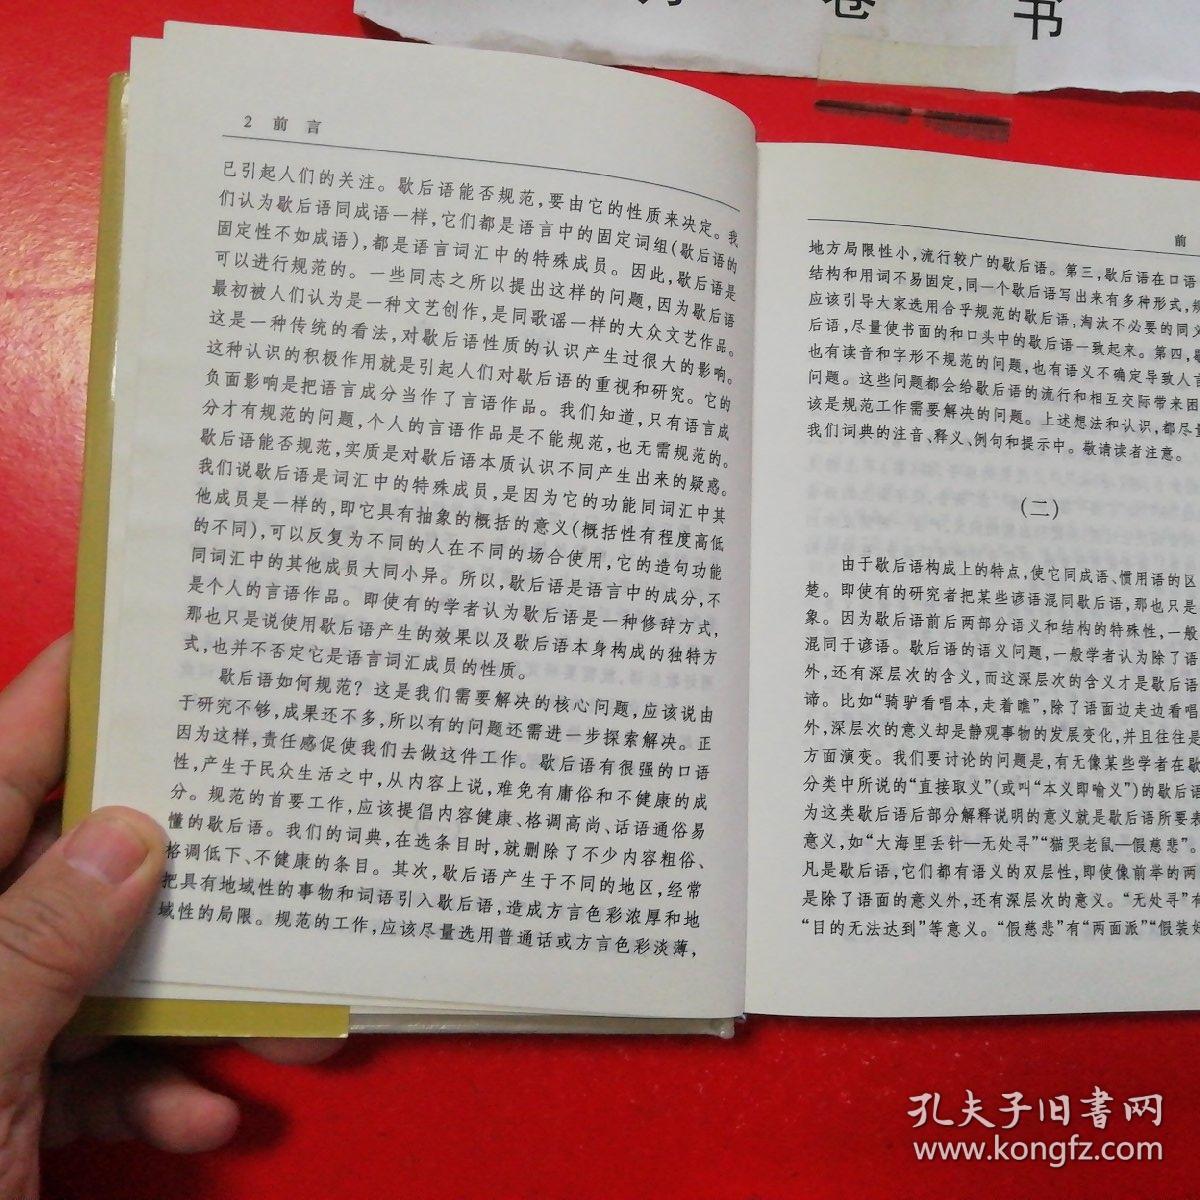 卷
书
2 前言
已引起人们的关注。歇后语能否规范，要由它的性质来决定。我
们认为歇后语同成语一样，它们都是语言中的固定词组(歇后语的
固定性不如成语)，都是语言词汇中的特殊成员。因此，歇后语是
可以进行规范的。一些同志之所以提出这样的问题，因为歇后语
最初被人们认为是一种文艺创作，是同歌谣一样的大众文艺作品。
这是一种传统的看法，对歇后语性质的认识产生过很大的影响。
这种认识的积极作用就是引起人们对歇后语的重视和研究。它的
负面影响是把语言成分当作了言语作品。我们知道，只有语言成
分才有规范的问题，个人的言语作品是不能规范，也无需规范的。
歇后语能否规范，实质是对歇后语本质认识不同产生出来的疑惑。
我们说歇后语是词汇中的特殊成员，是因为它的功能同词汇中其
他成员是一样的，即它具有抽象的概括的意义(概括性有程度高低
的不同)，可以反复为不同的人在不同的场合使用，它的造句功能
同词汇中的其他成员大同小异。所以，歇后语是语言中的成分，不
是个人的言语作品。即使有的学者认为歇后语是一种修辞方式，
那也只是说使用歇后语产生的效果以及歇后语本身构成的独特方
式，也并不否定它是语言词汇成员的性质。
歇后语如何规范？这是我们需要解决的核心问题，应该说由
于研究不够，成果还不多，所以有的问题还需进一步探索解决。正
因为这样，责任感促使我们去做这件工作。歇后语有很强的口语
性，产生于民众生活之中，从内容上说，难免有庸俗和不健康的成
分。规范的首要工作，应该提倡内容健康、格调高尚、话语通俗易
懂的歇后语。我们的词典，在选条目时，就删除了不少内容粗俗、
格调低下、不健康的条目。其次，歇后语产生于不同的地区，经常
把具有地域性的事物和词语引入歇后语，造成方言色彩浓厚和地
域性的局限。规范的工作，应该尽量选用普通话或方言色彩淡薄，
前
地方局限性小，流行较广的歇后语。第三，歇后语在口语
结构和用词不易固定，同一个歇后语写出来有多种形式，规
应该引导大家选用合乎规范的歇后语，淘汰不必要的同义
后语，尽量使书面的和口头中的歇后语一致起来。第四，歇
也有读音和字形不规范的问题，也有语义不确定导致人言
问题。这些问题都会给歇后语的流行和相互交际带来困
该是规范工作需要解决的问题。上述想法和认识，都尽量
我们词典的注音、释义、例句和提示中。敬请读者注意。
(二)
由于歇后语构成上的特点，使它同成语、惯用语的区
楚。即使有的研究者把某些谚语混同歇后语，那也只是
象。因为歇后语前后两部分语义和结构的特殊性，一般
混同于谚语。歇后语的语义问题，一般学者认为除了语
外，还有深层次的含义，而这深层次的含义才是歇后语
谛。比如“骑驴看唱本，走着瞧”，除了语面边走边看唱
外，深层次的意义却是静观事物的发展变化，并且往往是
方面演变。我们要讨论的问题是，有无像某些学者在歇
分类中所说的“直接取义”(或叫“本义即喻义”)的歇后语
为这类歇后语后部分解释说明的意义就是歇后语所要表
意义，如“大海里丢针—无处寻”“猫哭老鼠—假慈悲”。
凡是歇后语，它们都有语义的双层性，即使像前举的两
是除了语面的意义外，还有深层次的意义。“无处寻”有
“目的无法达到”等意义。“假慈悲”有“两面派”“假装好
孔夫子旧書网
www.kongfz.com